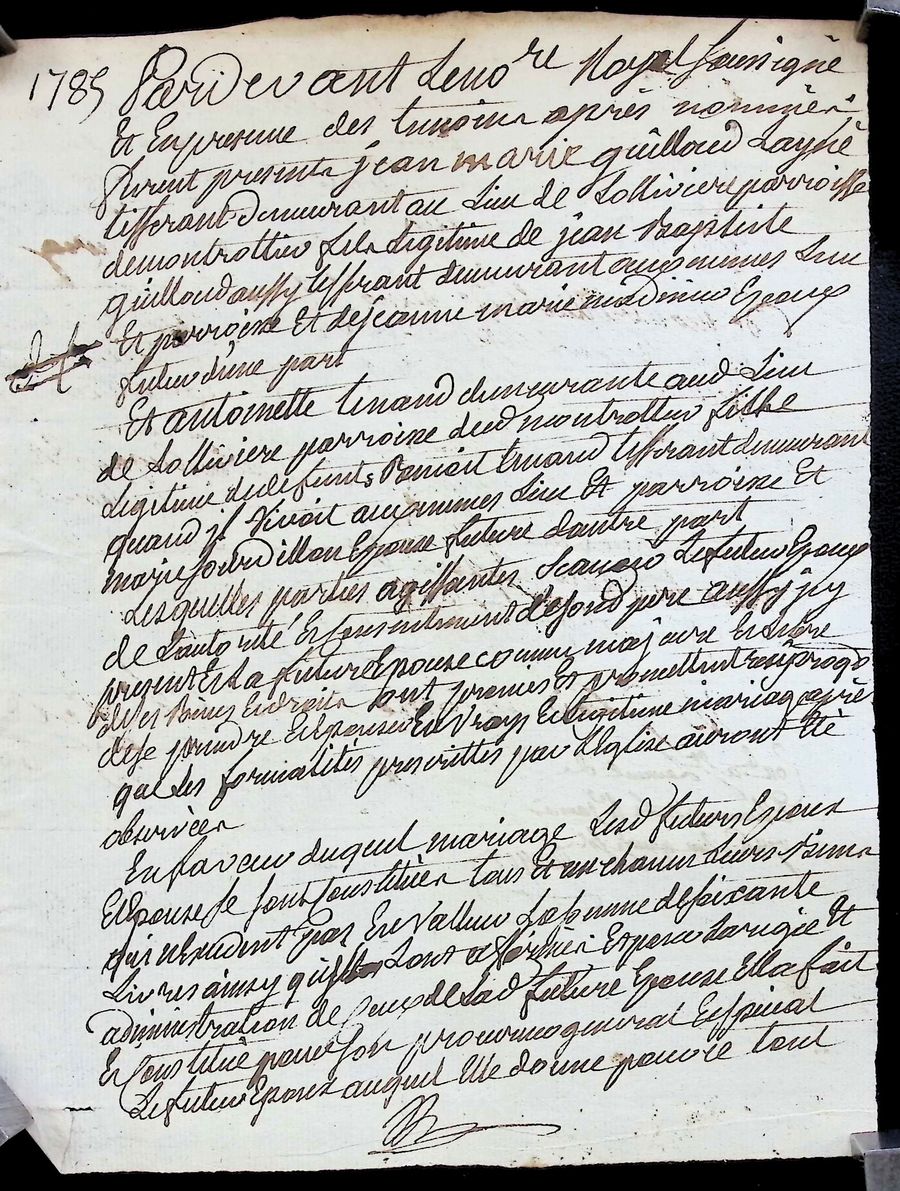 1785 Pardevant Le no.re Royal soussigné
Et En presence des temoins après nommés
furent present jean marie guilloud Layné
tisserant demeurant au Lieu de Lollivière parroisse
de montrottier fils Legitime de jean Baptiste
guilloud aussy tisserant demeurant aux memes Lieu
Et parroisse Et de jeanne marie Epoux
futur d'une part
Et antoinette demeurante aud Lieu
de Lollivière parroisse dud montrottier fille
Legitime de defunts Benoit tisserant demeurant
quand il vivoit aux memes Lieu Et parroisse Et
marie Epouse future dautre part
Lesquelles parties agissantes scavoir Le futur Epoux
de L'autorité Et Consentement desond pere aussy jcy
present Et La future Epouse comme majeure Et libre
de ses Biens Et droits ont promis Et promettent
de se prendre Et Epouser En vray Et Legitime mariage après
que Les formalités prescrittes par L'Eglise auront Eté
observées
En faveur duquel mariage Lesd futurs Epoux
Et Epouse se sont Constitués tous Et un chacun Leurs Biens
qui n'Excedent pas En valleur La somme de soixante
Livres ainsy quils Lont affirmé Et pour La regie Et
administration de Ceux de Lad future Epouse Ella fait
Et Constitué pour son procureur general Et special
Le futur Epoux auquel Elle donne pouvoir tant